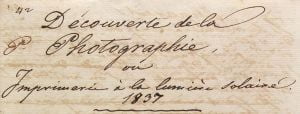 Découverte de la
Photographie,
ou
Imprimerie à la lumière solaire.
1837